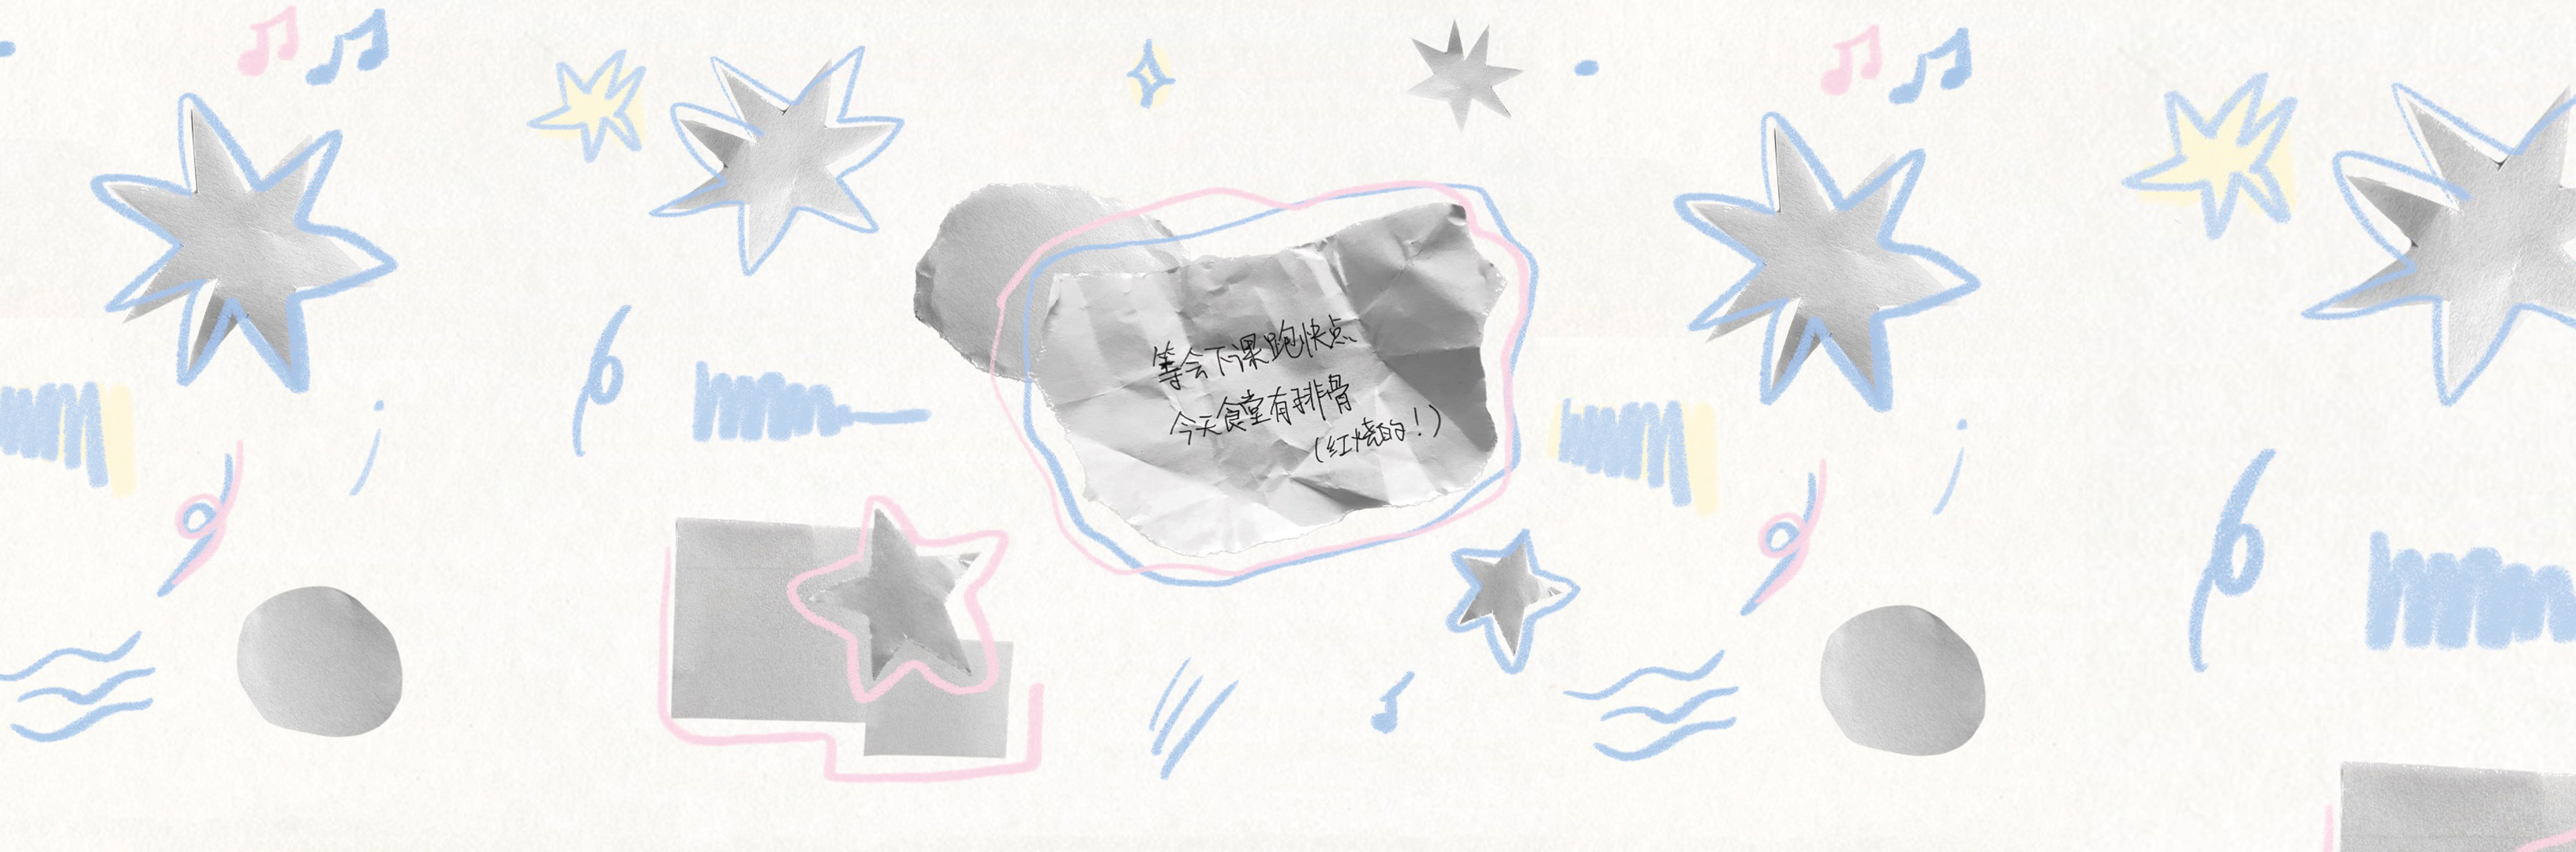 等会下课跑快点
今天食堂有排骨
(红烧的!)